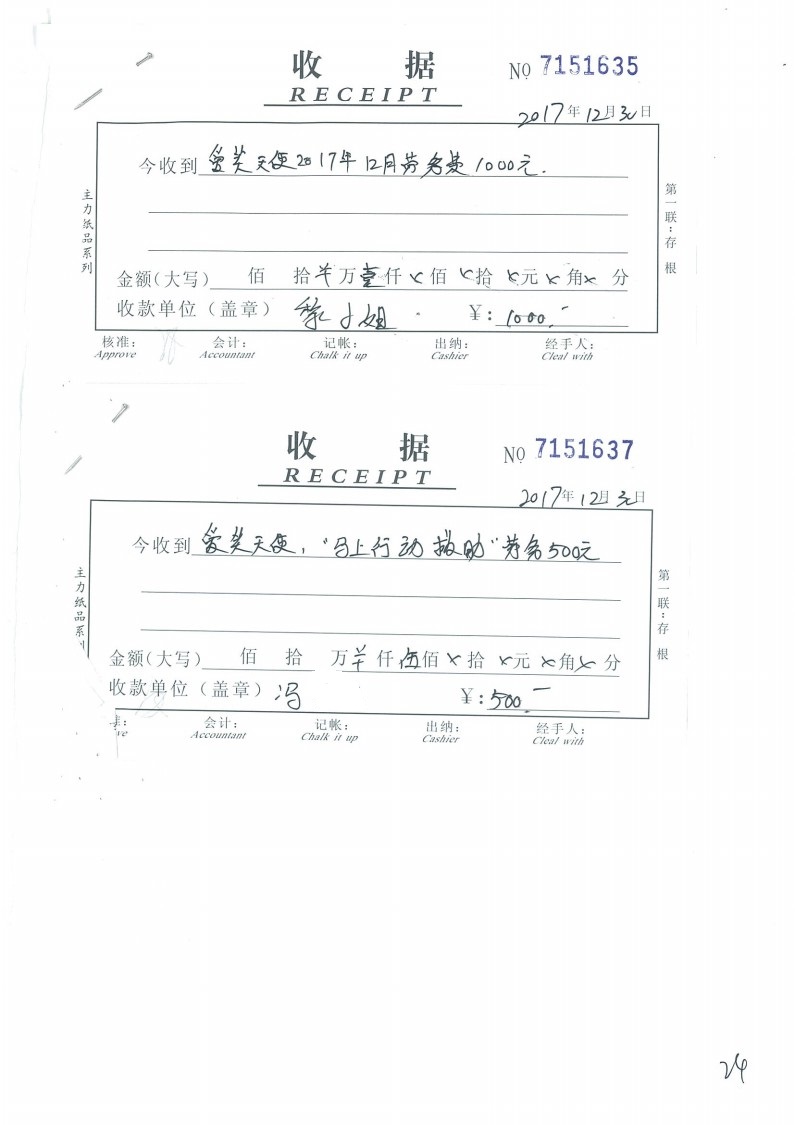 收 据 NO 7151635
RECEIPT
2017年12月30日
今收到 爱芙天使2017年12月劳务费1000元.
金额(大写) 佰 拾 万壹仟 × 佰 × 拾 × 元 × 角 × 分
收款单位(盖章) 小姐 ¥: 1000.-
核准: 会计: 记帐: 出纳: 经手人:
Approve Accountant Chalk it up Cashier Cleal with
主力纸品系列
第一联:存根
收 据 NO 7151637
RECEIPT
2017年12月30日
今收到 爱芙天使,“马上行动 救助”劳务500元
金额(大写) 佰 拾 万 仟伍佰 × 拾 × 元 × 角 × 分
收款单位(盖章) 冯 ¥: 500.-
会计: 记帐: 出纳: 经手人:
Accountant Chalk it up Cashier Cleal with
主力纸品系
第一联:存根
24